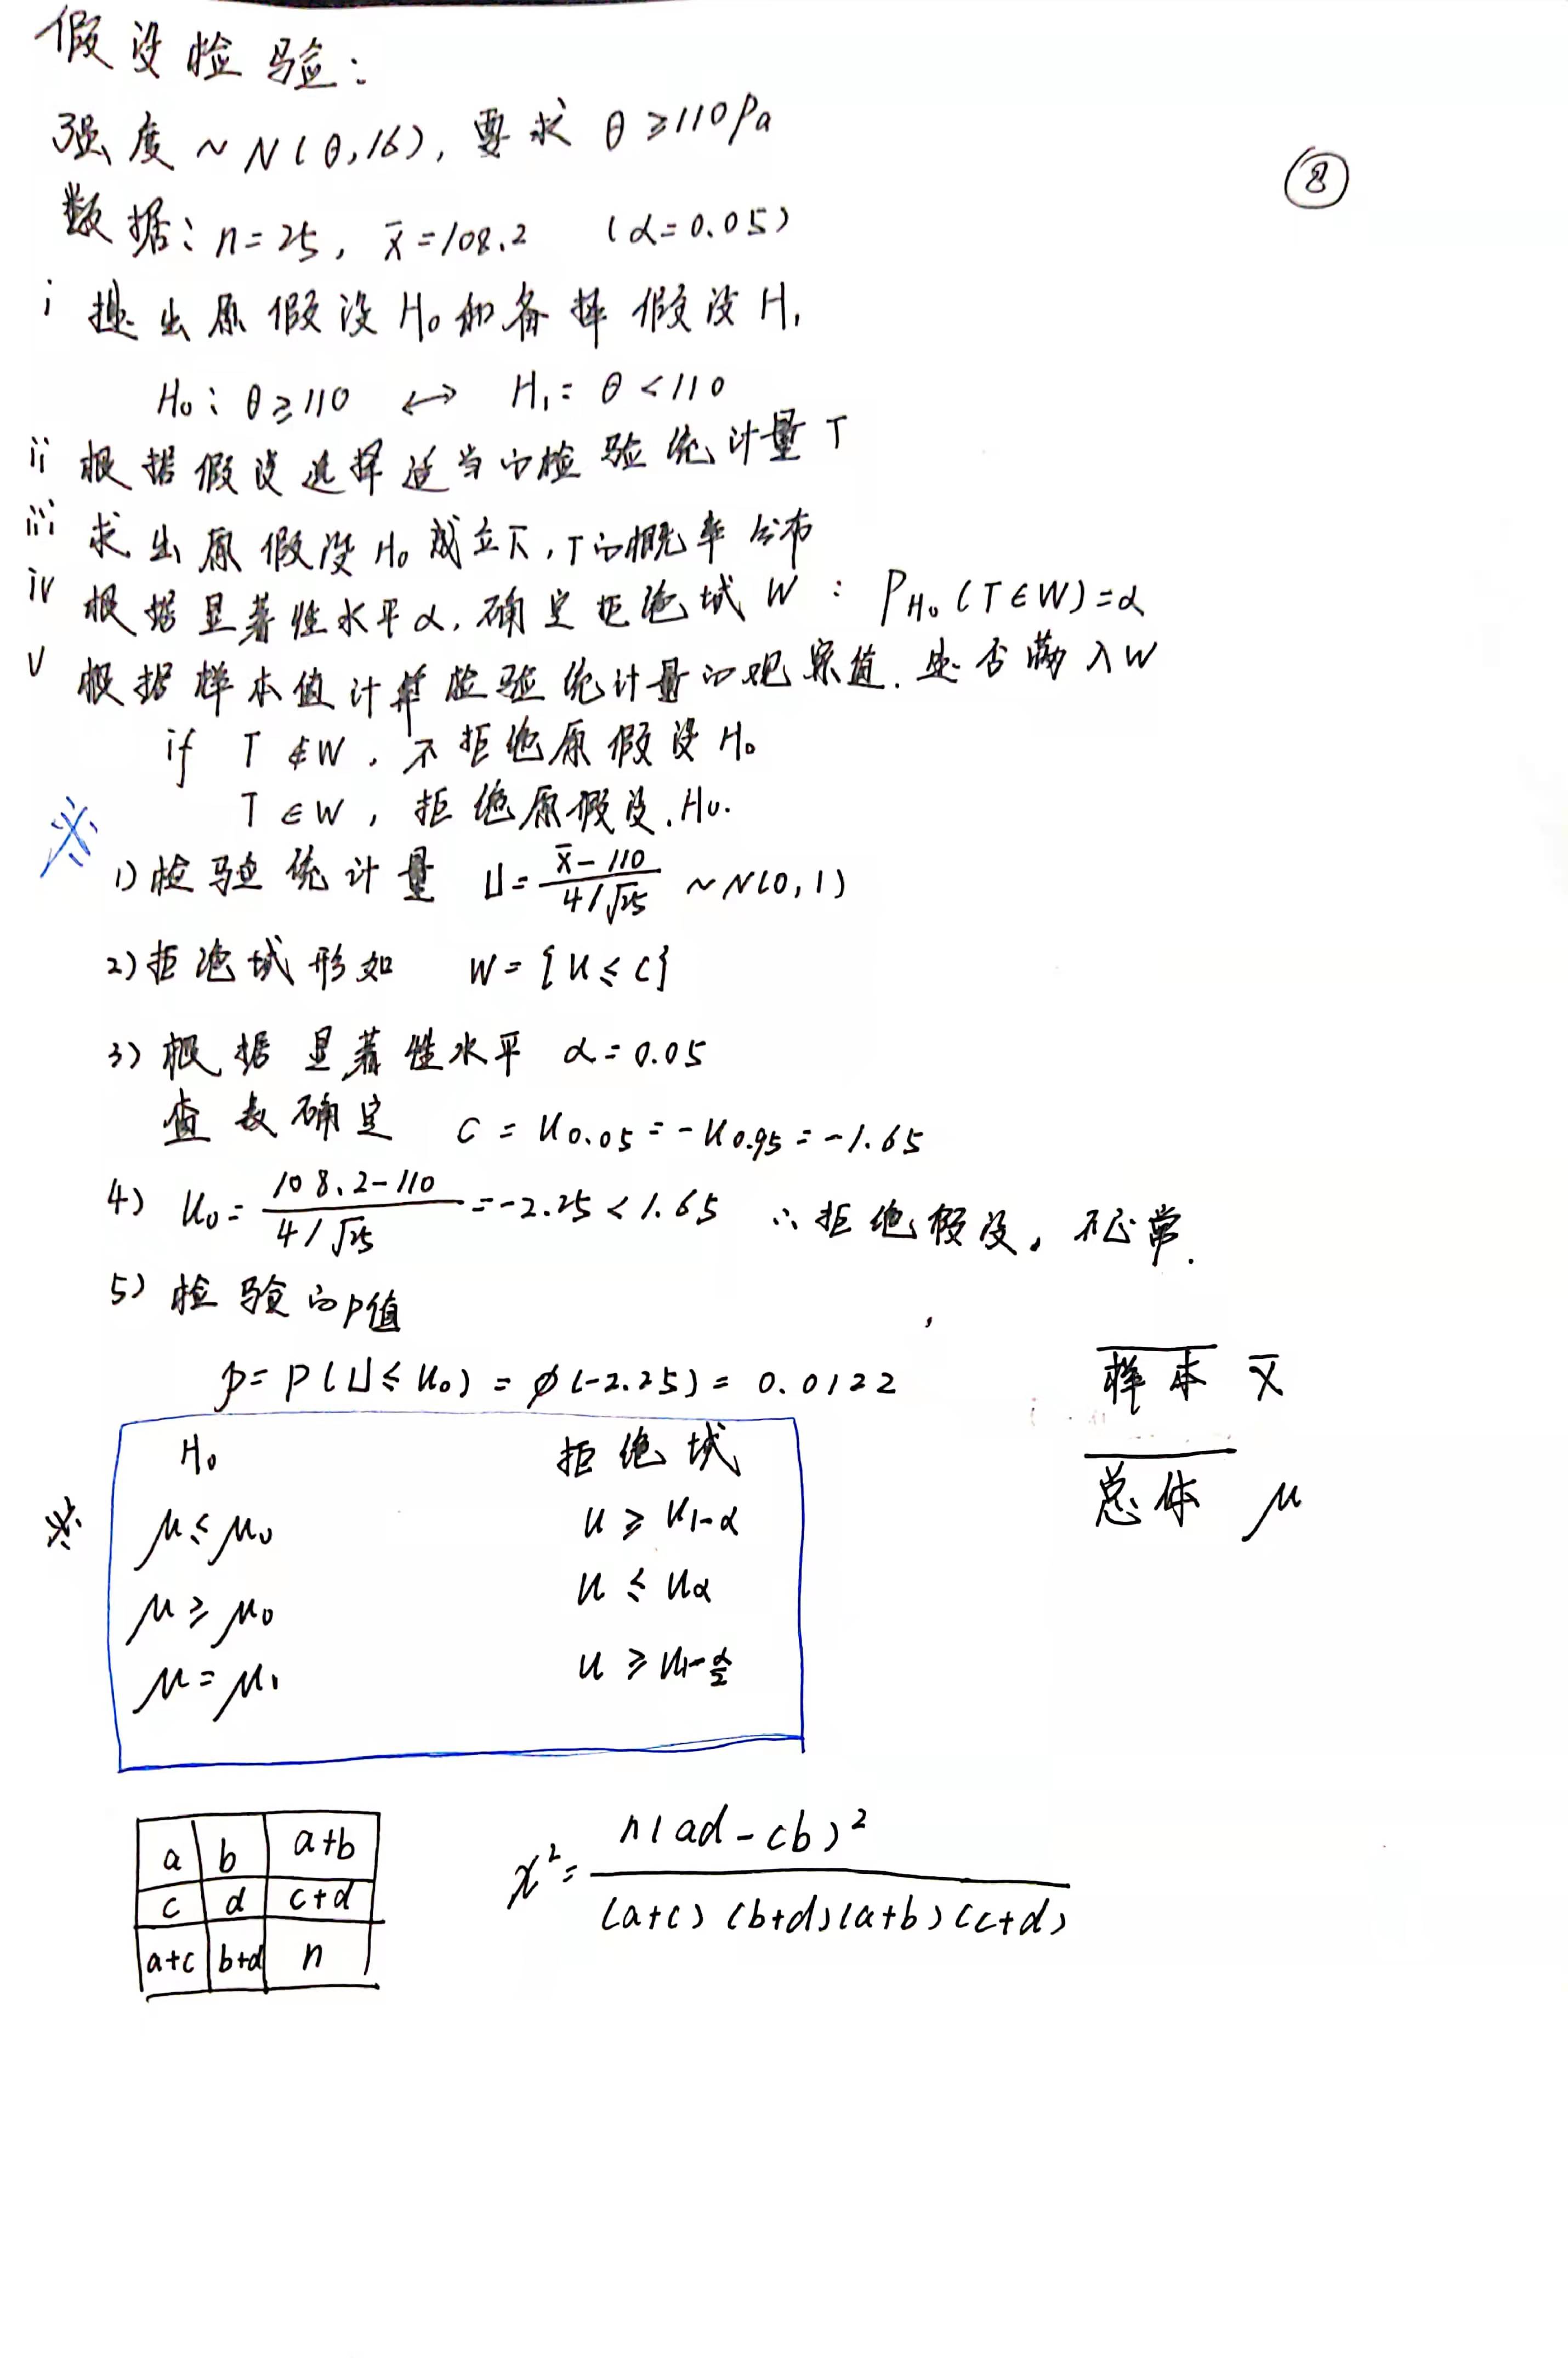 假设检验:
强度~N(θ,16),要求 θ≥110Pa
⑧
数据:n=25, x̄=108.2 (α=0.05)
i 提出原假设H₀和备择假设H₁
H₀:θ≥110 ↔ H₁:θ<110
ii 根据假设选择适当的检验统计量T
iii 求出原假设H₀成立下,T的概率分布
iv 根据显著性水平α,确定拒绝域W:P_H₀(T∈W)=α
v 根据样本值计算检验统计量的观察值.是否落入W
if T∉W,不拒绝原假设H₀
T∈W,拒绝原假设.H₀.
※ 1)检验统计量 U=(x̄-110)/(4/√25) ~N(0,1)
2)拒绝域形如 W={u≤c}
3)根据显著性水平 α=0.05
查表确定 c=u0.05=-u0.95=-1.65
4) u₀=(108.2-110)/(4/√25)=-2.25<1.65 ∴拒绝假设,不正常.
5)检验的p值
p=P(U≤u₀)=φ(-2.25)=0.0122
样本 x̄
总体 μ
H₀ 拒绝域
※ μ≤μ₀ u≥u₁-α
μ≥μ₀ u≤uα
μ=μ₁ u≥u₁-α/2
a b a+b
c d c+d
a+c b+d n
χ²=n(ad-cb)²/(a+c)(b+d)(a+b)(c+d)